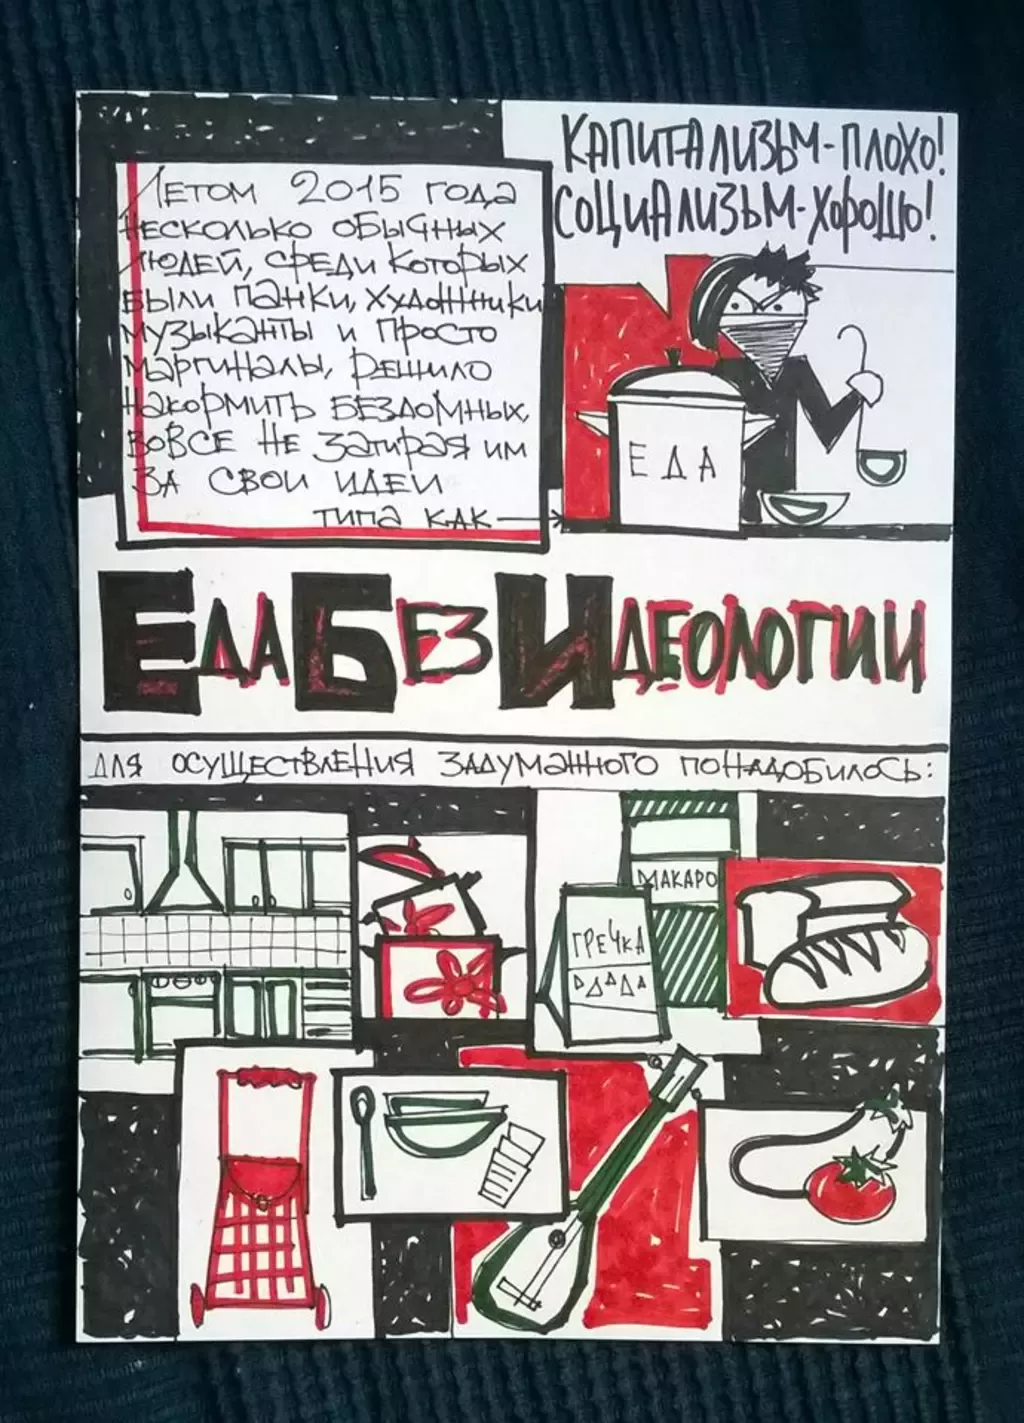 Летом 2015 года
несколько обычных
людей, среди которых
были панки, художники
музыканты и просто
маргиналы, решило
накормить бездомных,
вовсе не затирая им
за свои идеи
типа как
КАПИТАЛИЗЬМ-ПЛОХО!
СОЦИАЛИЗЬМ-ХОРОШО!
ЕДА
ЕДА БЕЗ ИДЕОЛОГИИ
ДЛЯ ОСУЩЕСТВЛЕНИЯ ЗАДУМАННОГО ПОНАДОБИЛОСЬ:
МАКАРО
ГРЕЧКА